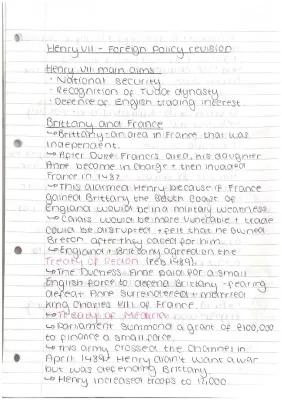 Henry VII - Foreign Policy revision
Henry VII main aims
· National Security.
· Recognition of Tudor dynasty
· Defense of English trading interest.
Brittany and France
↳ Brittany - an area in France that was
independent.
↳ After Duke Francis died, his daughter
Anne become in charge + then invaded
France in 1487.
↳ This alarmed Henry because if France
gained Brittany the South Coast of
England would be in a military weakness.
↳ Calais would be more vunerable + trade
could be disrupted + felt that he owned
Breton after they cared for him.
↳ England + Brittany agreed on the
Treaty of Redon (Feb 1489).
↳ The Duchess Anne paid for a small
English force to defend Brittany - fearing
defeat Anne Surrendered + married
King Charles VIII of France.
↳ Treaty of Medina
↳ Parliament summond a grant of £100,000
to finance a small force.
↳ This army crossed the Channel in
April 1489. Henry didn't want a war
but was defending Brittany.
↳ Henry increased troops to